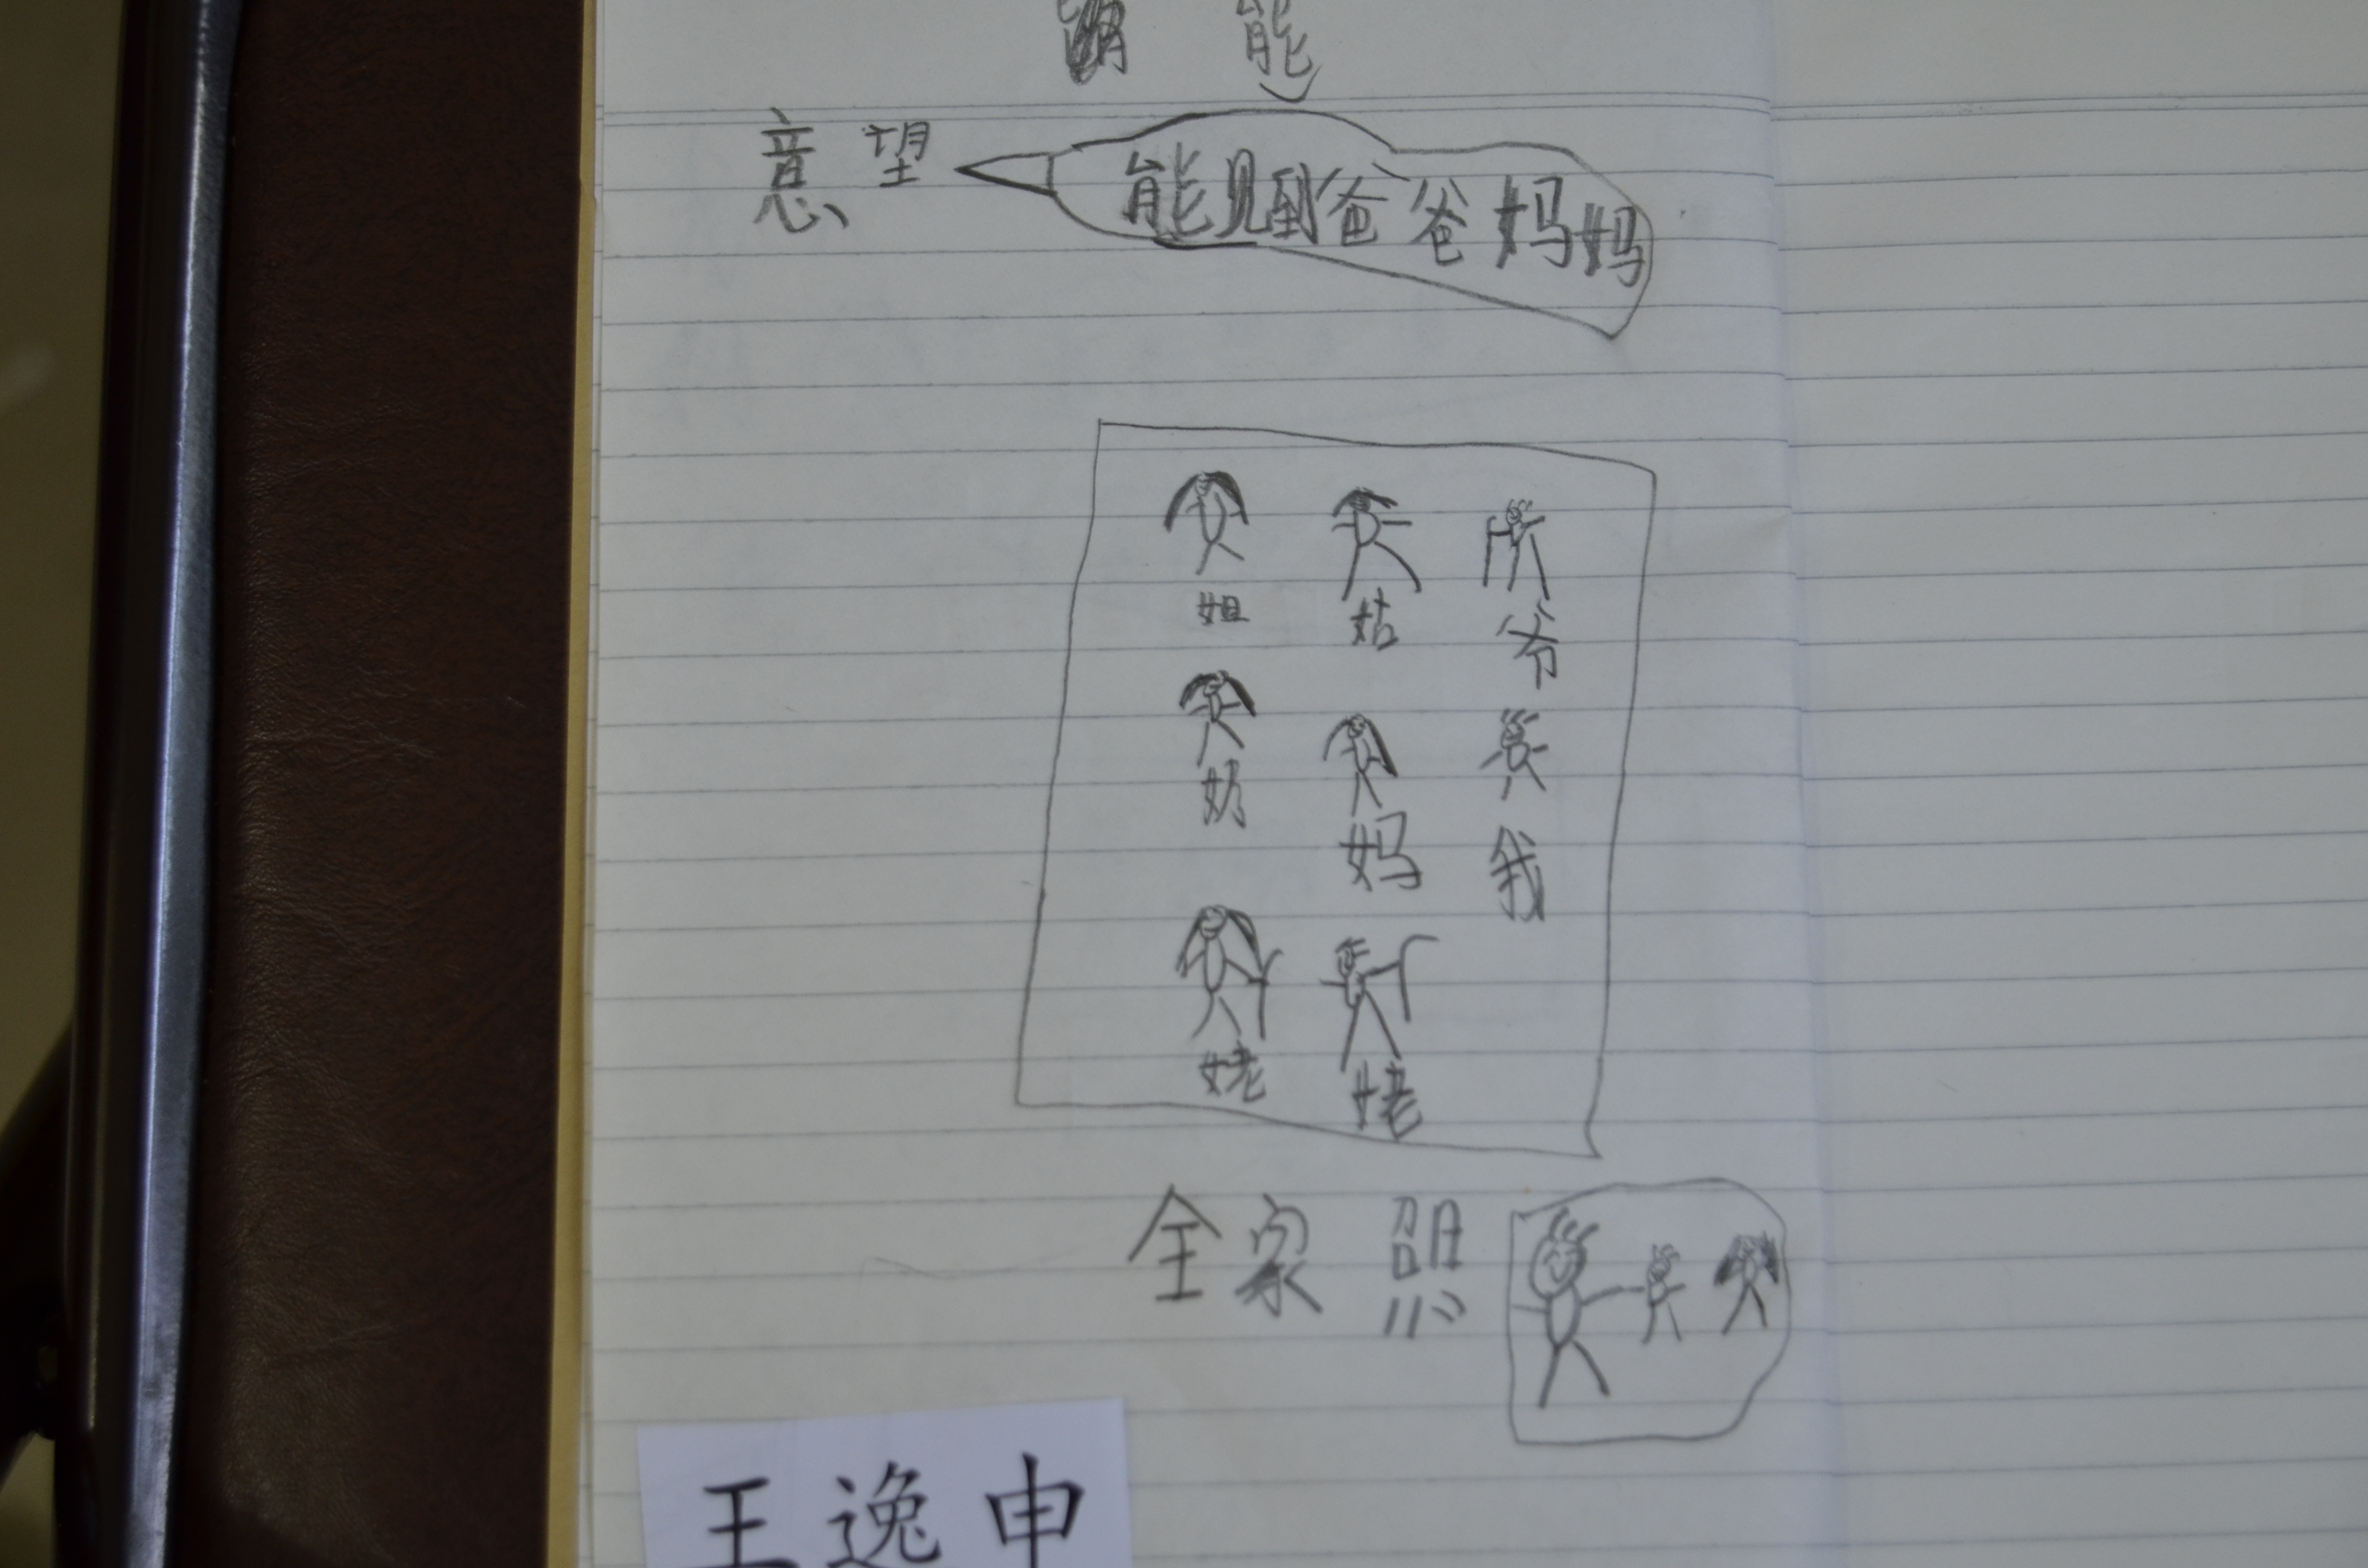 能
意望 能见到爸爸妈妈
姐 姑 爷
奶 妈 我
姥 姥
全家照
王逸申